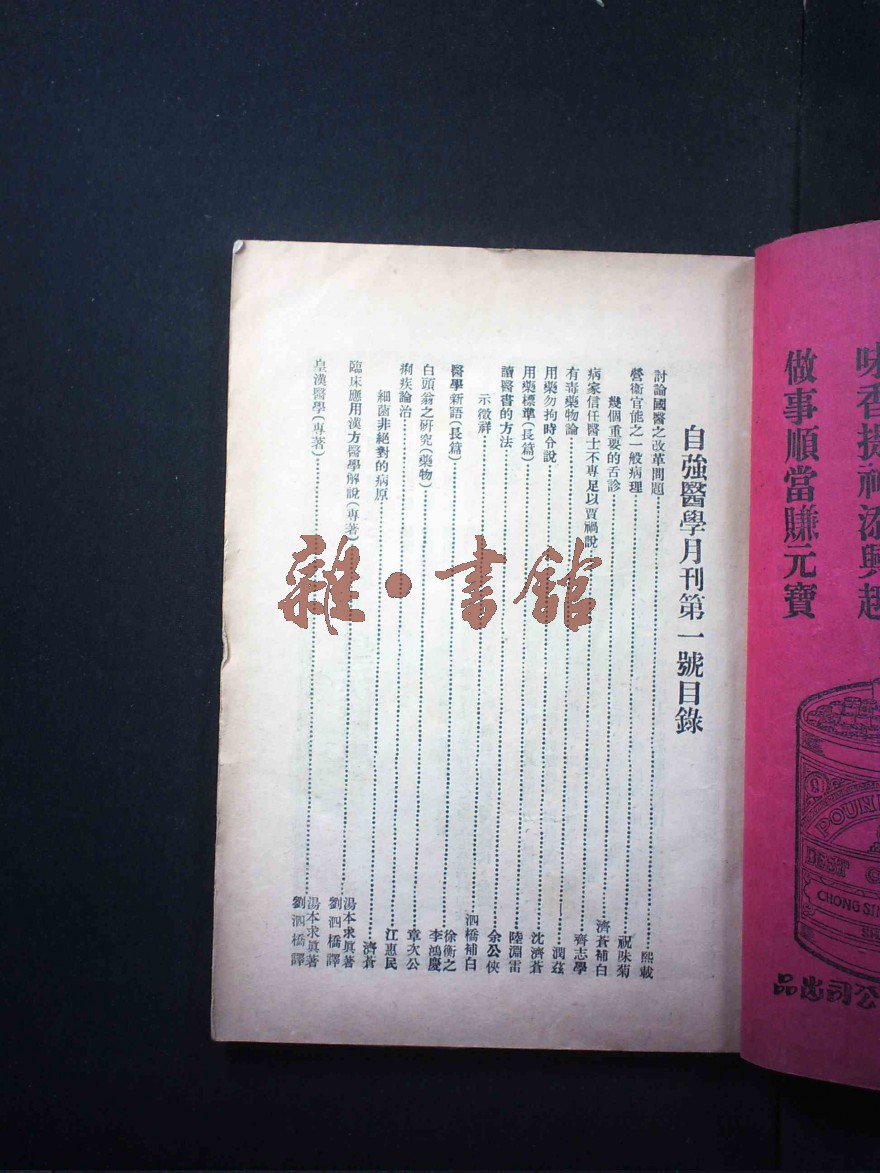 味香提神添興趣
做事順當賺元寶
POUN
BEST C
公司出品
自強醫學月刊第一號目錄
討論國醫之改革問題 熙載
營衛官能之一般病理 祝味菊
幾個重要的舌診 濟蒼補白
病家信任醫士不專足以賈禍說 齊志學
有毒藥物論 潤茲
用藥勿拘時令說 沈濟蒼
用藥標準(長篇) 陸淵雷
讀醫書的方法 余公俠
示徵祥 泗橋補白
醫學新語(長篇) 徐衡之 李鴻慶
白頭翁之研究(藥物) 章次公
痢疾論治 江惠民
細菌非絕對的病原 濟蒼
臨床應用漢方醫學解說(專著) 湯本求眞著 劉泗橋譯
皇漢醫學(專著) 湯本求眞著 劉泗橋譯
雜·書館